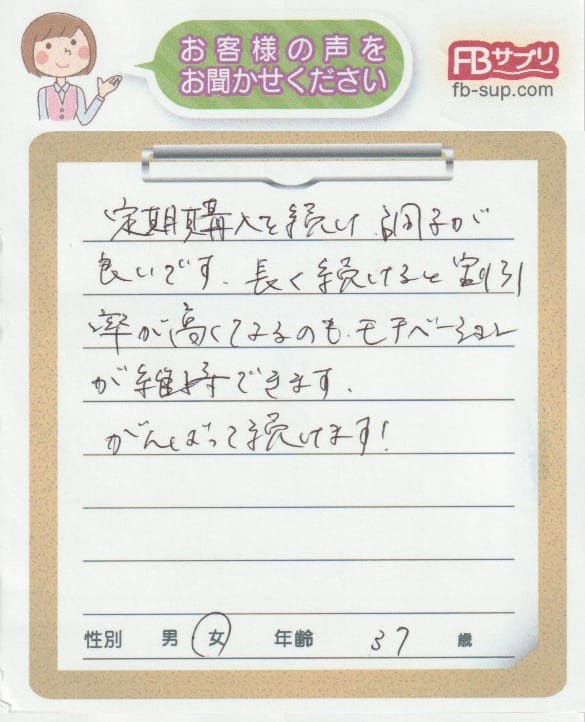 お客様の声を
お聞かせください
FBサプリ
fb-sup.com
定期購入を続け、調子が
良いです。長く続けると割引
率が高くてなるのも、モチベーション
が維持できます。
がんばって続けます!
性別 男 女 年齢 37 歳